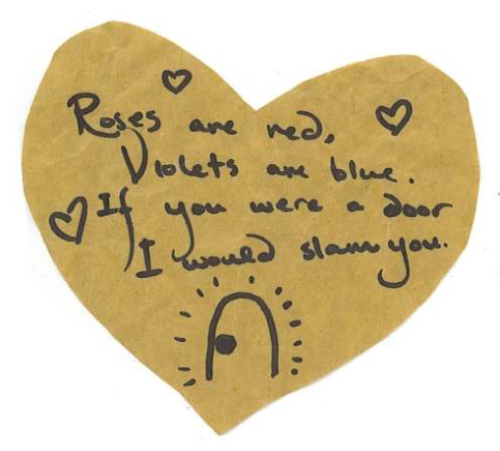 Roses are red,
Violets are blue.
If you were a door
I would slam you.